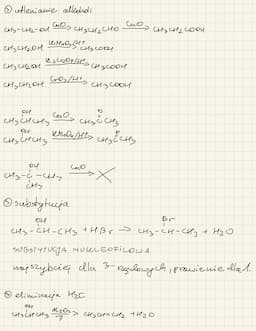 ① utlenianie alkoholi
CH₃-CH₂-OH —CuO→ CH₃CH₂CHO —CuO→ CH₃CH₂COOH
CH₃CH₂OH —KMnO₄/H⁺→ CH₃COOH
CH₃CH₂OH —K₂Cr₂O₇/H⁺→ CH₃COOH
CH₃CH₂OH —CrO₃/H⁺→ CH₃COOH
OH O
CH₃CHCH₃ —CuO→ CH₃CCH₃
OH O
CH₃CHCH₃ —KMnO₄/H⁺→ CH₃CCH₃
OH
CH₃-C-CH₃ —CuO→ X
CH₃
② substytucja
OH Br
CH₃-CH-CH₃ + HBr → CH₃-CH-CH₃ + H₂O
SUBSTYTUCJA NUKLEOFILOWA
najszybciej dla 3-rzędowych, prawie nie dla 1.
③ eliminacja
OH
CH₃CHCH₃ —Al₂O₃→ CH₃CH=CH₂ + H₂O